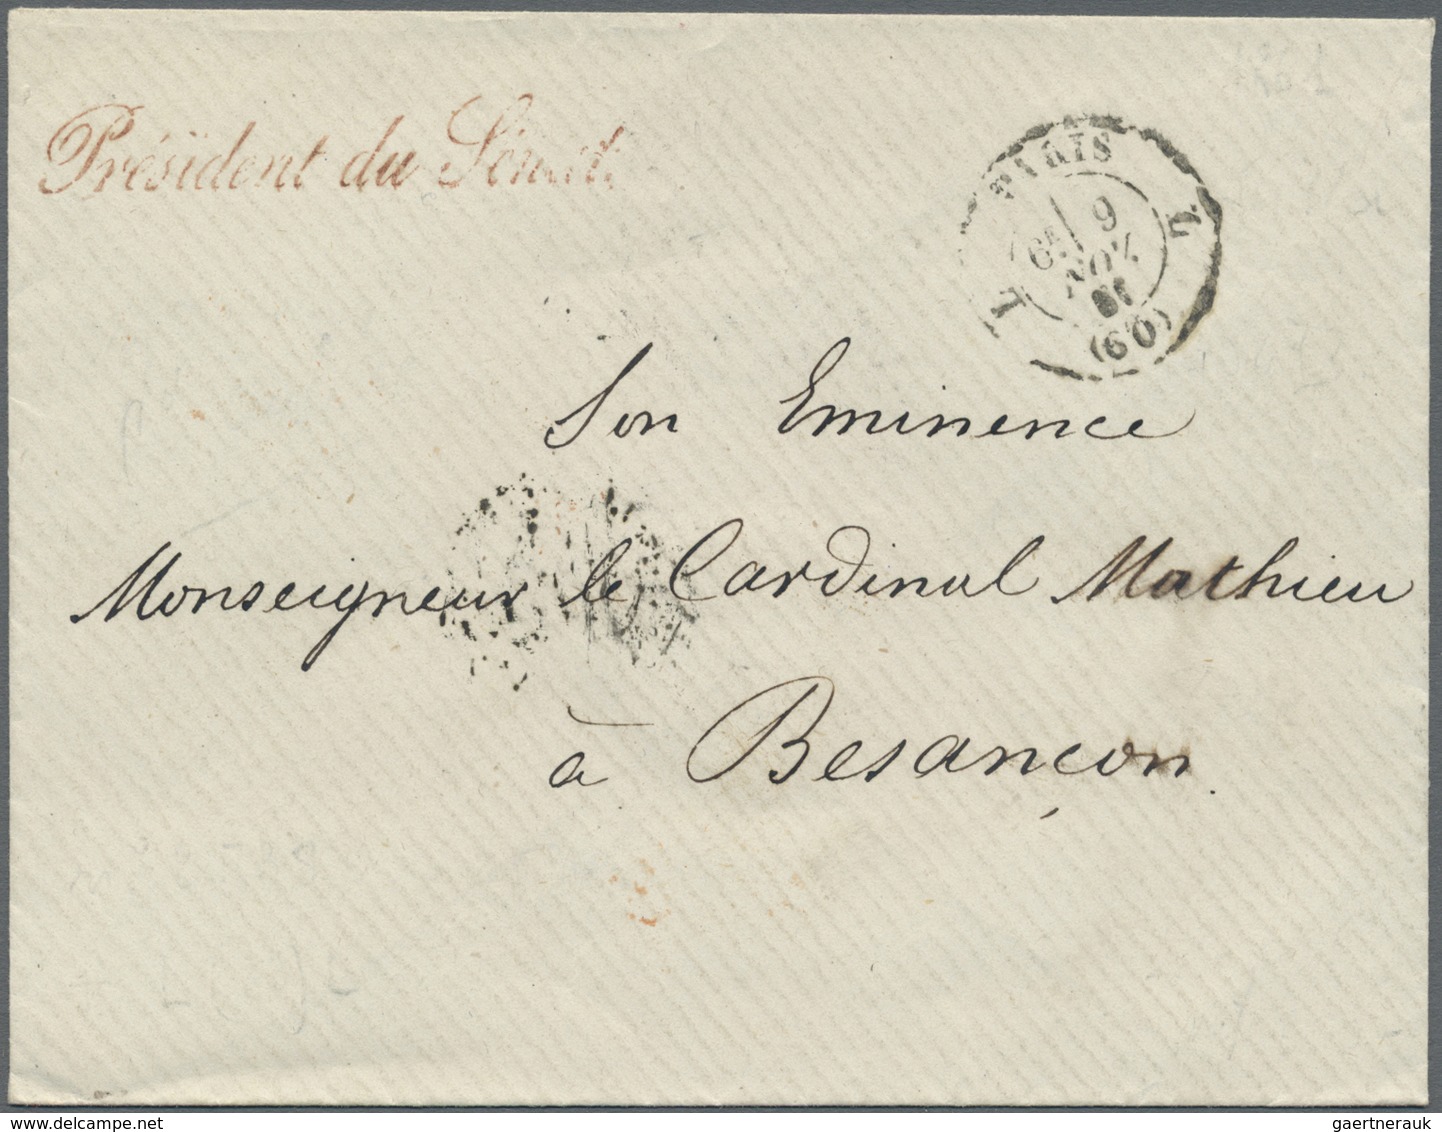 Président du Sénat.
PARIS
6E 9
NOV.
(60)
Son Eminence
Monseigneur le Cardinal Mathieu
à Besançon.
gaertnerauk / www.delcampe.net